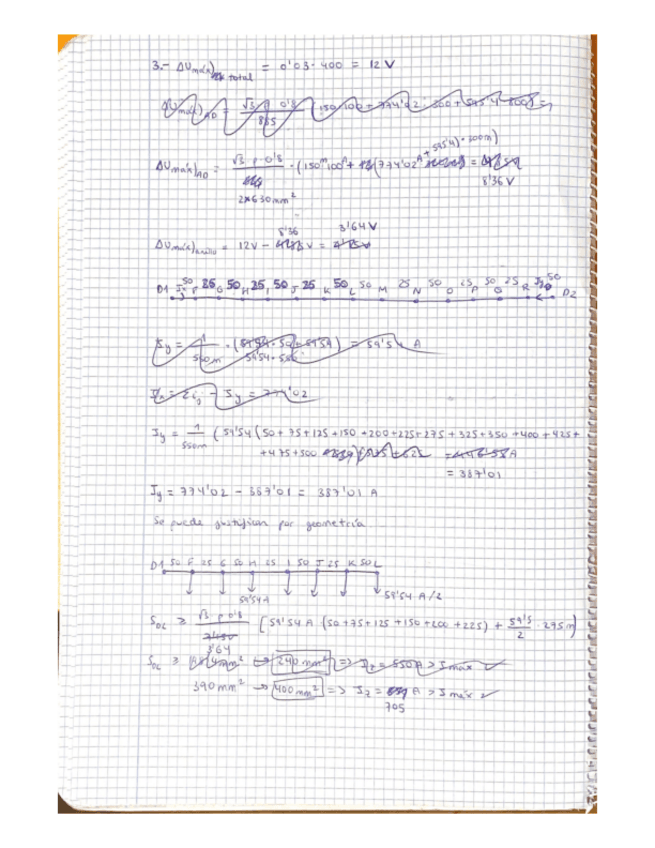 3.- ΔUmáx) total = 0'03 · 400 = 12 V
ΔUmáx)AD = √3 ρ 0'8 / 2x630mm² · (150m 100A + (774'02A + 595'4) · 300m) = 8'36 V
ΔUmáx)anillo = 12V - 8'36 V = 3'64 V
D1 50 F 25 G 50 H 25 I 50 J 25 K 50 L 50 M 25 N 50 O 25 P 50 Q 25 R 50 D2
Iy = 1/550m (59'54 (50 + 75 + 125 + 150 + 200 + 225 + 275 + 325 + 350 + 400 + 425 +
+ 475 + 500
= 387'01
Iy = 774'02 - 387'01 = 387'01 A
Se puede justificar por geometría
D1 50 F 25 G 50 H 25 I 50 J 25 K 50 L
59'54 A 59'54 A/2
SDL ≥ √3 ρ 0'8 / 3'64 [59'54 A · (50 + 75 + 125 + 150 + 200 + 225) + 59'5/2 · 275 m]
SDL ≥ 240 mm² => Iz = 550A > Imáx ✓
390 mm² → 400 mm² => Iz = A > Imáx ✓
705